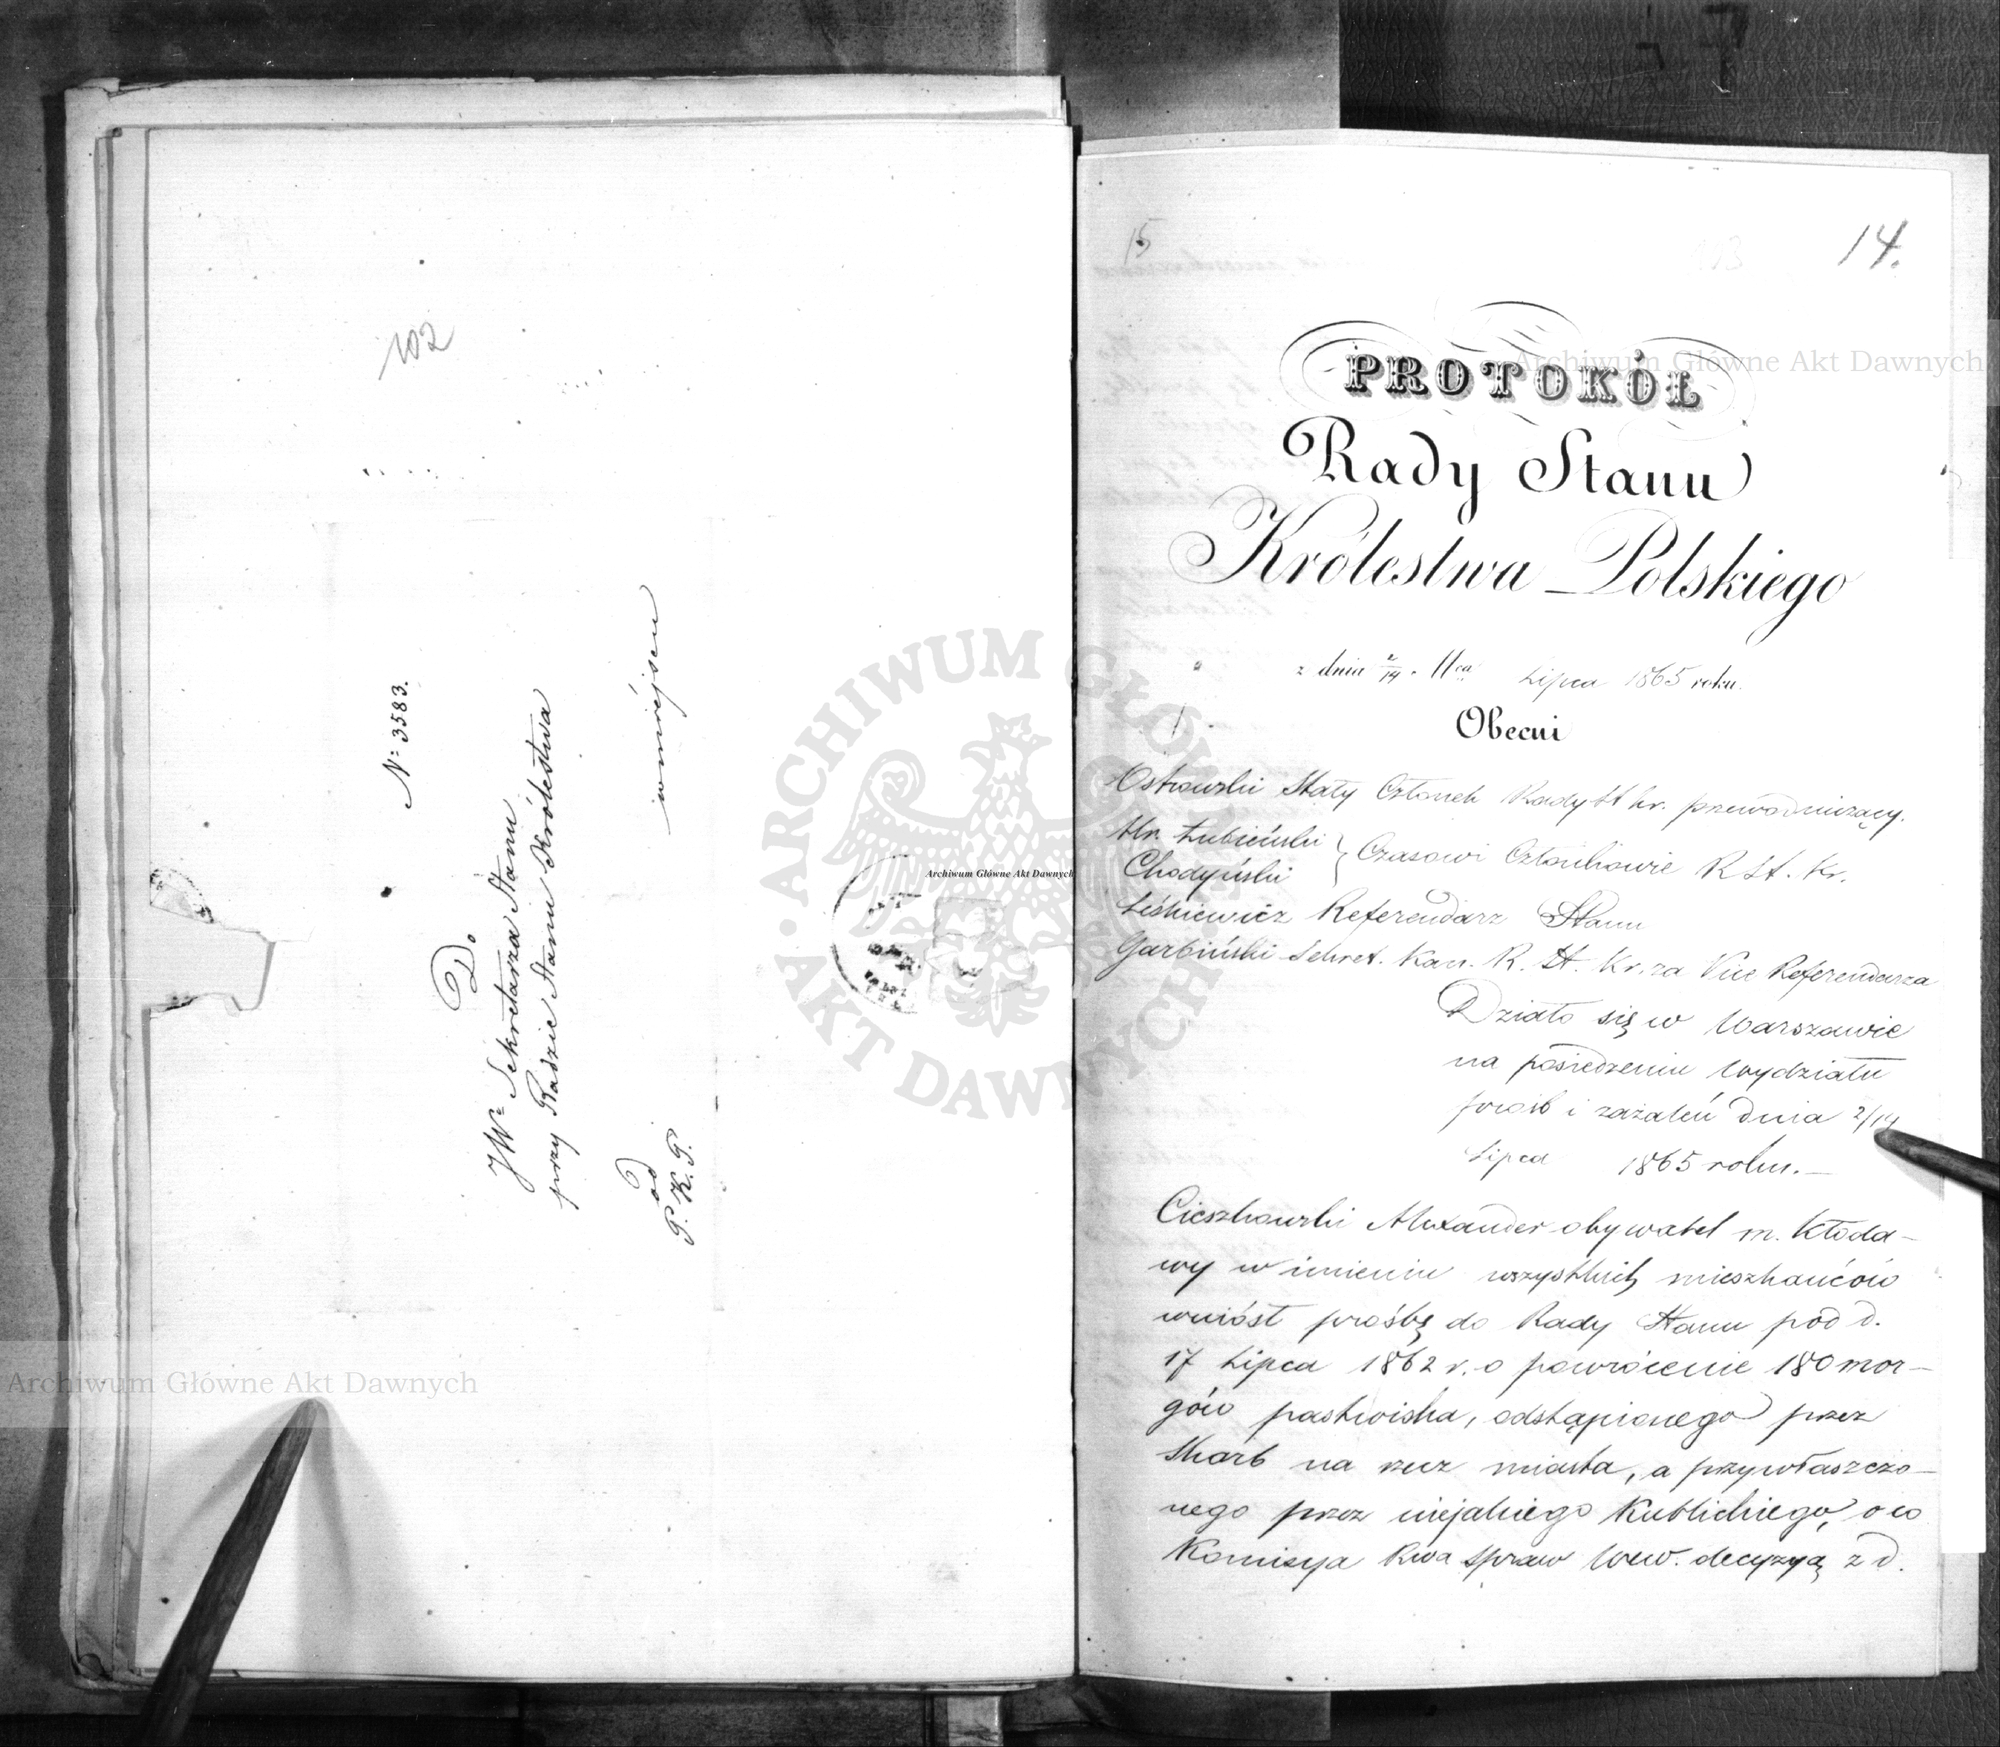 102
№ 3583.
Do
JW. Sekretarza Stanu
przy Radzie Stanu Królestwa
w miejscu
od
P. K. P.
15
14.
PROTOKÓŁ
Rady Stanu
Królestwa Polskiego
z dnia 2/14 Mca Lipca 1865 roku.
Obecni
Ostrowski Stały Członek Rady St Kr. przewodniczący.
Hr. Łubieński } Czasowi Członkowie R St. Kr.
Chodyński
Leśkiewicz Referendarz Stanu
Garbiński Sekret. Kan. R. St. Kr. za Vice Referendarza
Działo się w Warszawie
na posiedzeniu Wydziału
prośb i zażaleń dnia 2/14
Lipca 1865 roku. —
Cieszkowski Alexander obywatel m. Kłoda-
wy w imieniu wszystkich mieszkańców
wniósł prośbę do Rady Stanu pod d.
17 Lipca 1862 r. o powrócenie 180 mor-
gów pastwiska, odstąpionego przez
Skarb na rzecz miasta, a przywłaszczo-
nego przez niejakiego Kublickiego, o co
Komisya Rwa Spraw Wew. decyzyą z d.
Archiwum Główne Akt Dawnych
Archiwum Główne Akt Dawnych
Archiwum Główne Akt Dawnych
ARCHIWUM GŁÓWNE AKT DAWNYCH